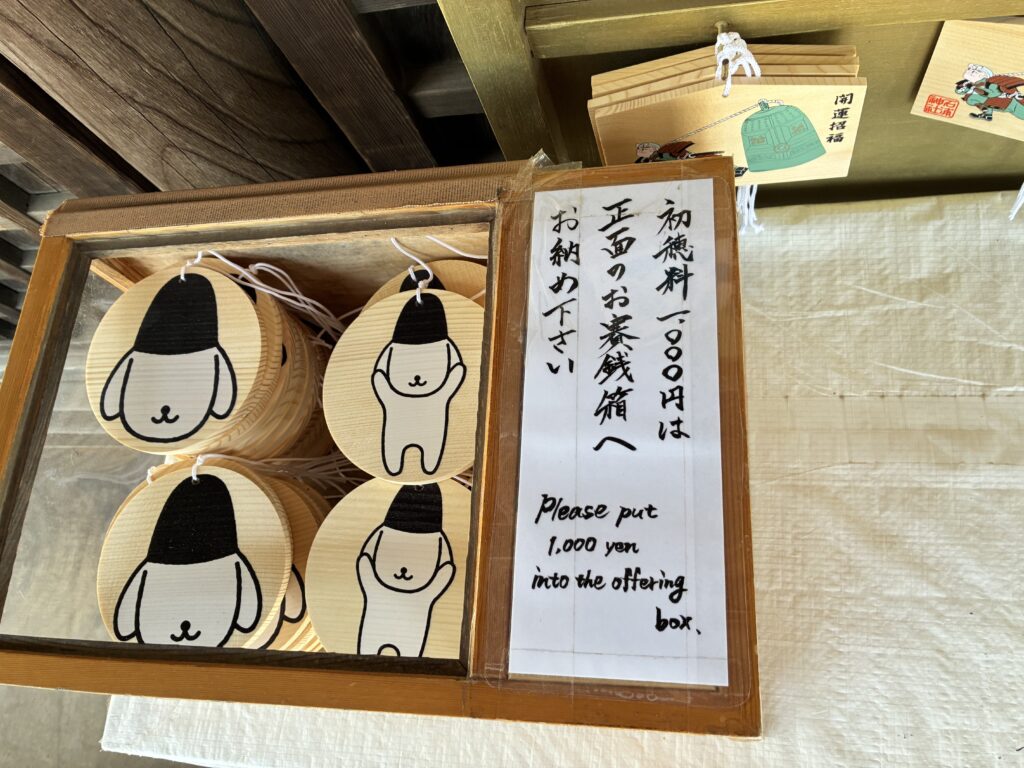 初穂料一、〇〇〇円は
正面のお賽銭箱へ
お納め下さい
Please put
1,000 yen
into the offering
box.
開運招福